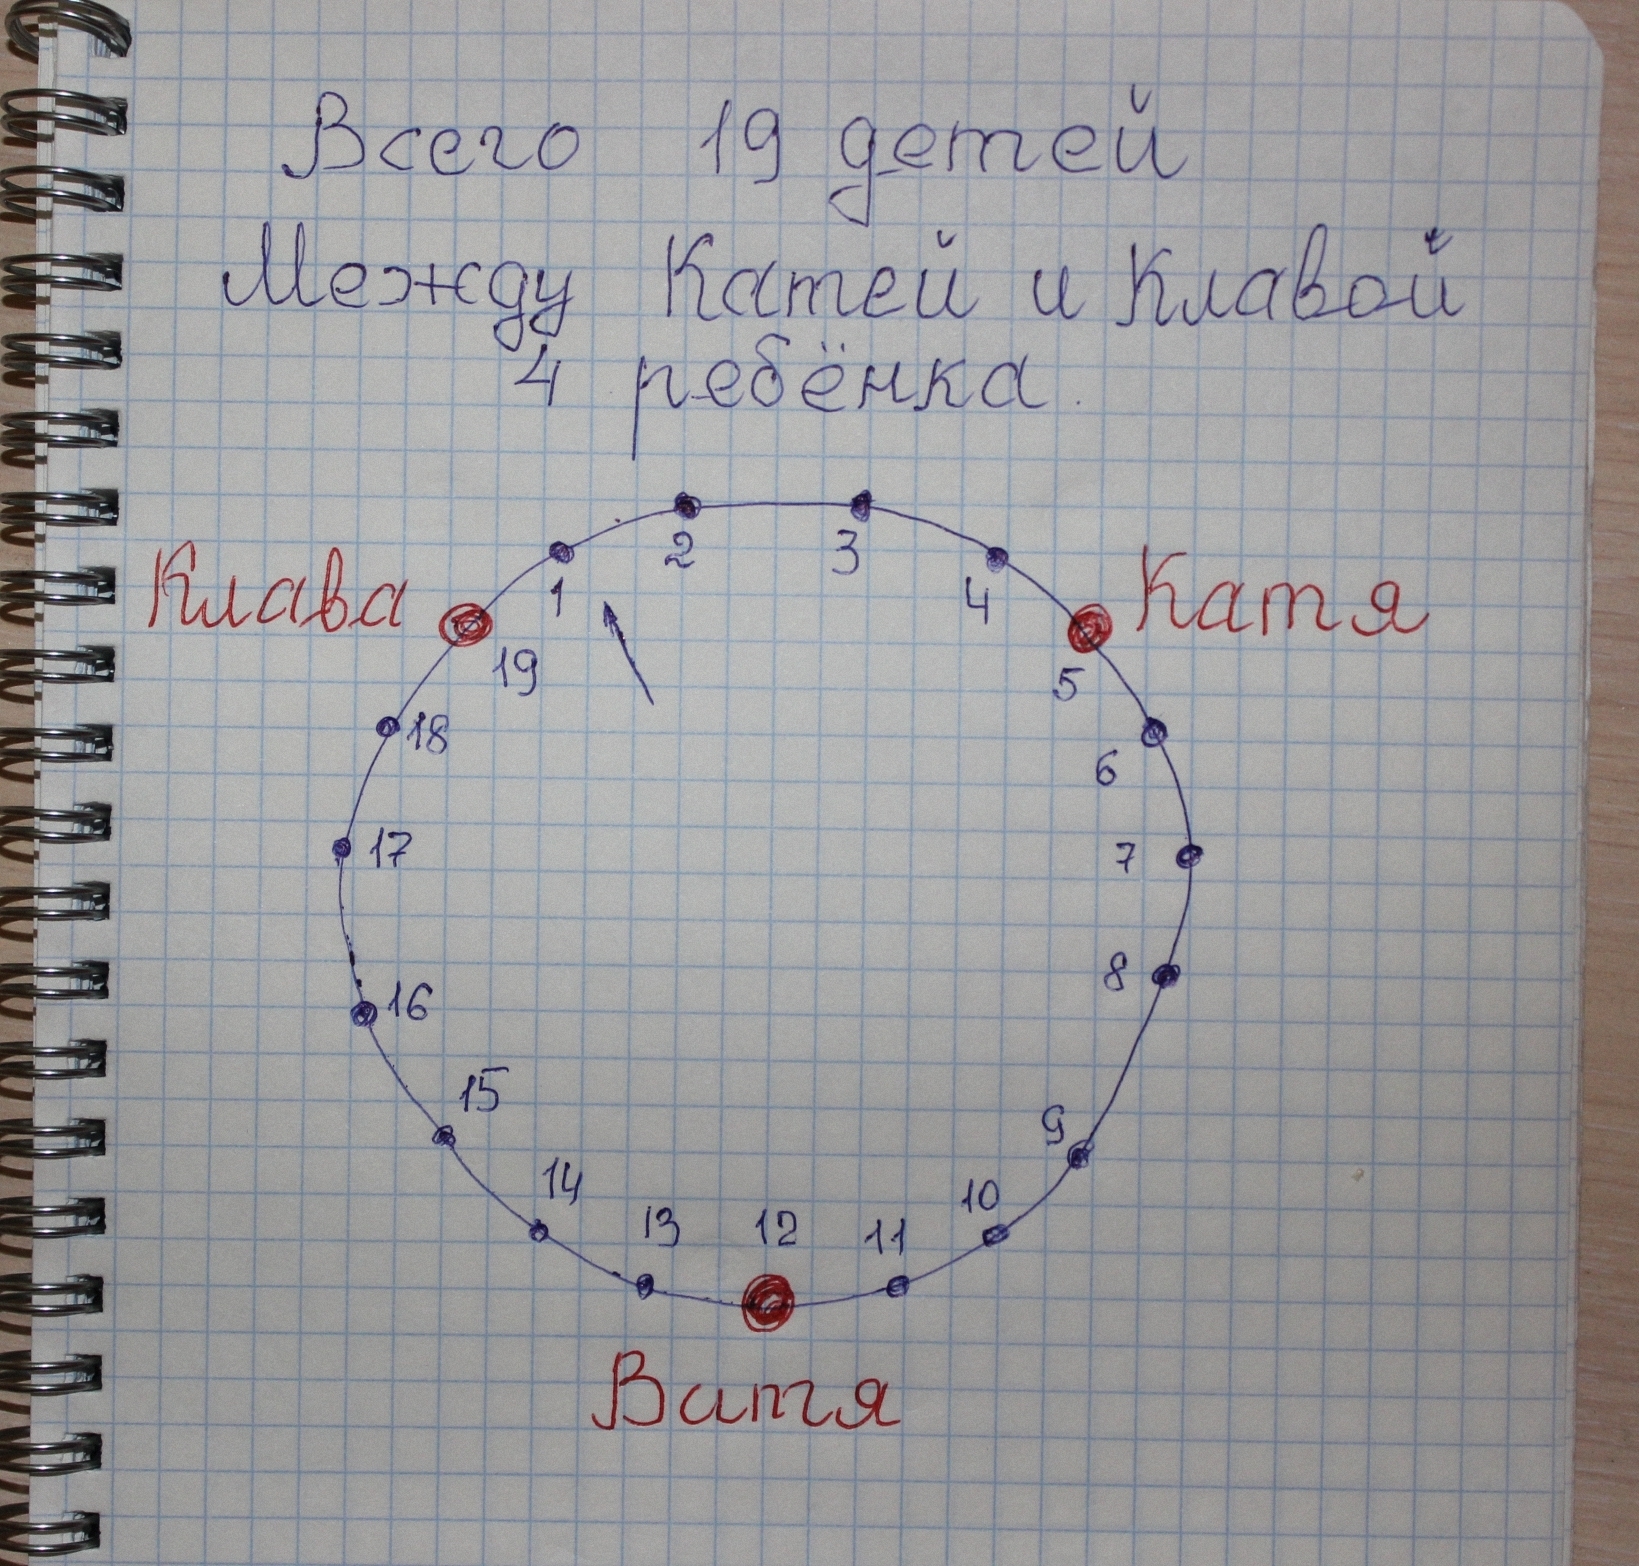 Всего 19 детей
Между Катей и Клавой
4 ребёнка.
2 3
Клава 1 4 Катя
19 5
18 6
17 7
16 8
15 9
14 10
13 12 11
Витя